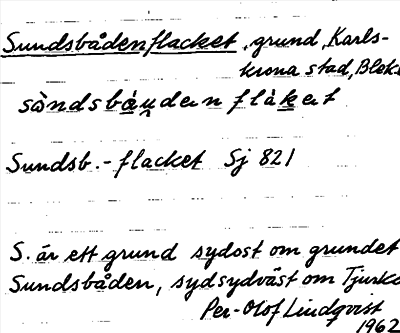 Sundsbådenflacket, grund, Karls-
krona stad, Blek.
sàndsbáu̯dan flàkat
Sundsb.-flacket Sj 821
S. är ett grund sydost om grundet
Sundsbåden, sydsydväst om Tjurkö
Per-Olof Lindqvist
1962